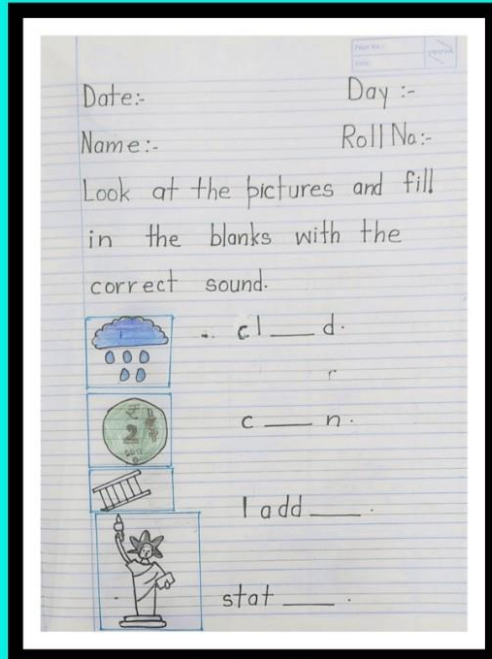 Date:- Day :-
Name:- Roll No:-
Look at the pictures and fill
in the blanks with the
correct sound.
cl ___ d.
c ___ n.
₹
2
ladd ___.
stat ___.